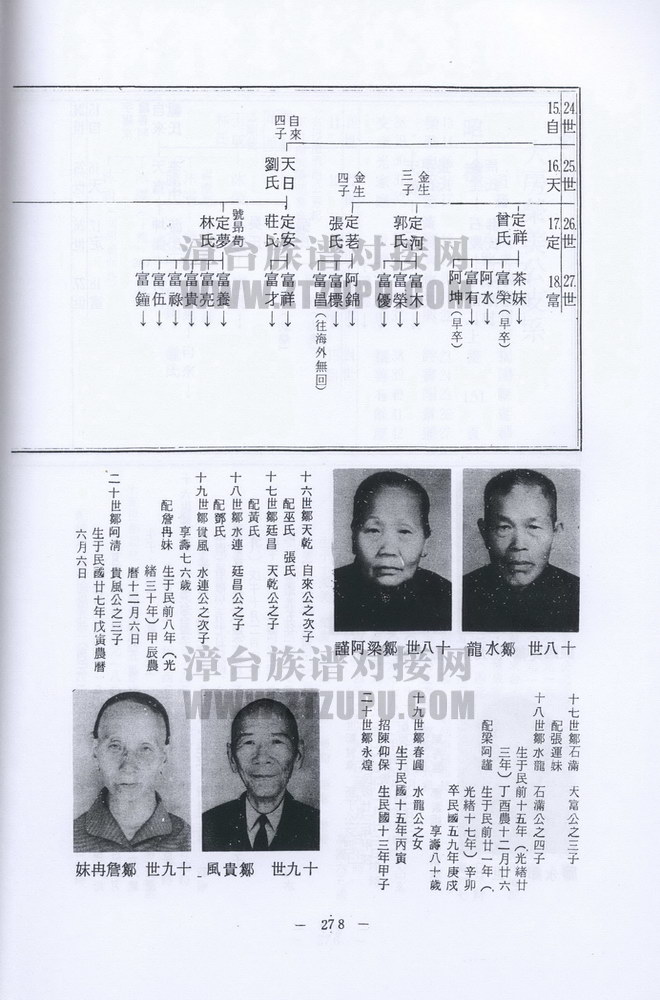 15. 24世
自
16. 25世
天
17. 26世
定
18. 27世
富
自來
四子
天日
劉氏
金生
三子
金生
四子
定祥
曾氏
定河
郭氏
定茖
張氏
定安
莊氏
定夢
林氏
號昴荀
茶妹
富榮(早卒)
阿水
富有
阿坤(早卒)
富木
富榮
富優
阿錦
富標
富昌(往海外無回)
富祥
富才
富養
富亮
富貴
富祿
富伍
富鐘
漳台族谱对接网
WWW.ZTZUPU.COM
十八世 鄒水龍
十八世 鄒梁阿謹
十六世鄒天乾 自來公之次子
配巫氏 張氏
十七世鄒廷昌 天乾公之子
配黃氏
十八世鄒水連 廷昌公之子
配鄧氏
十九世鄒貴風 水連公之次子
享壽七六歲
配詹冉妹 生于民前八年(光
緒三十年)甲辰農
曆十二月六日
二十世鄒阿清 貴風公之三子
生于民國廿七年戊寅農曆
六月六日
十七世鄒石滿 天富公之三子
配張運妹
十八世鄒水龍 石滿公之四子
生于民前十五年(光緒廿
三年)丁酉農十二月廿六
配梁阿謹 生于民前廿一年(
光緒十七年)辛卯
卒民國五九年庚戌
享壽八十歲
十九世鄒春圓 水龍公之女
生于民國十五年丙寅
招陳仰保 生民國十三年甲子
二十世鄒永煌
漳台族谱对接网
WWW.ZTZUPU.COM
十九世 鄒貴風
十九世 鄒詹冉妹
— 278 —